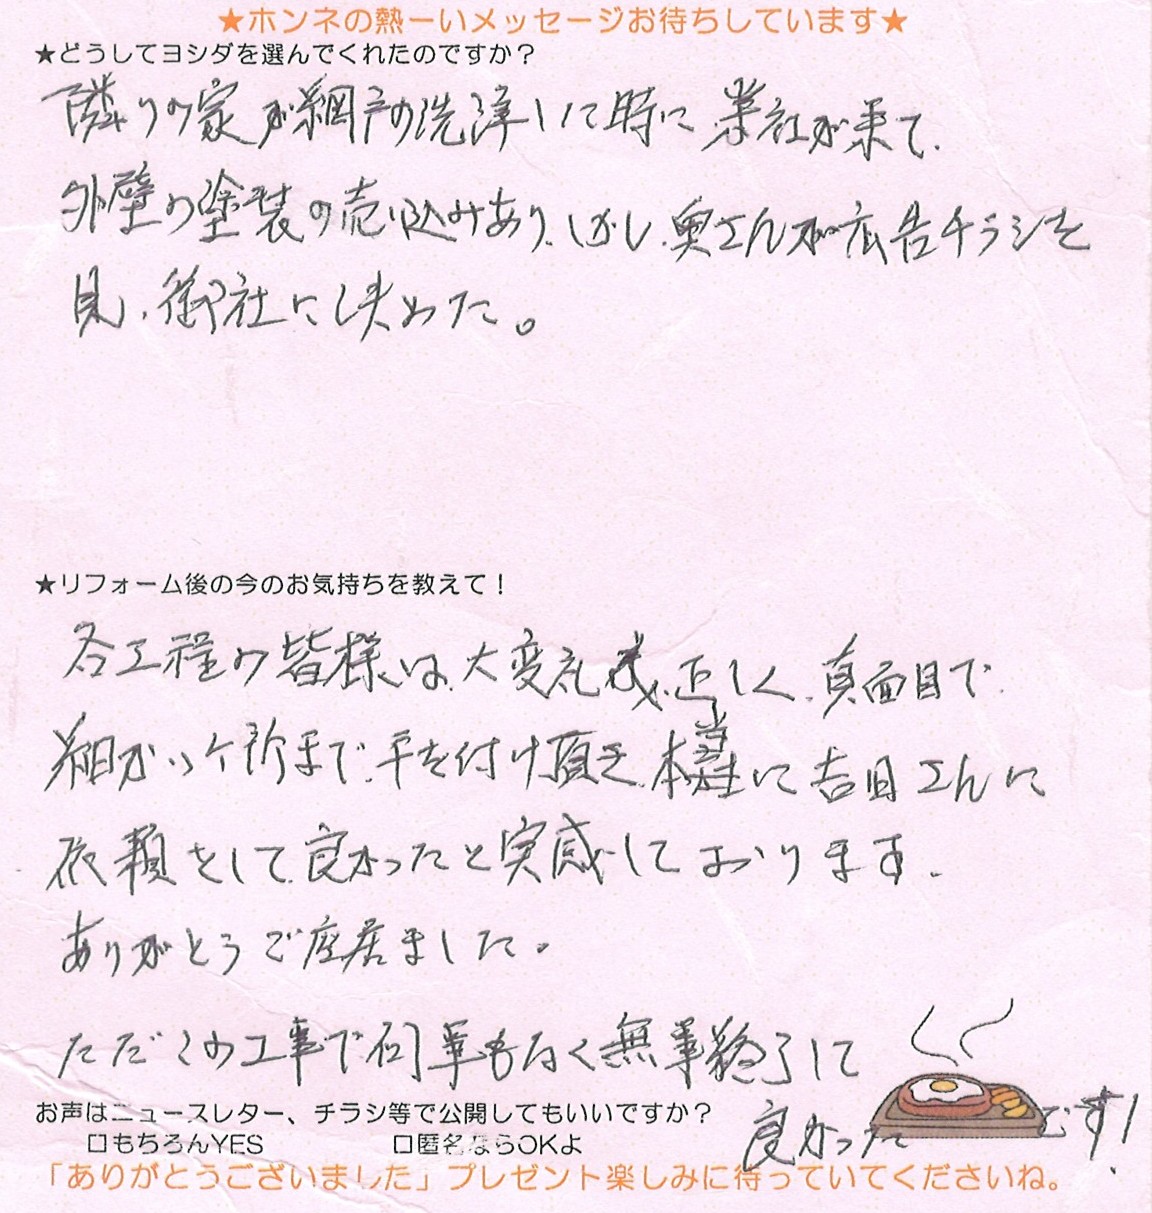 ★ホンネの熱ーいメッセージお待ちしています★
★どうしてヨシダを選んでくれたのですか？
隣りの家が網戸の洗浄して時に業社が来て、
外壁の塗装の売り込みあり、しかし、奥さんが広告チラシを
見、御社に決めた。
★リフォーム後の今のお気持ちを教えて！
各工程の皆様は、大変礼儀正しく、真面目で、
細かいケ所まで、手を付け頂き、本当に吉田さんに
依頼をして良かったと実感しております。
ありがとうご座居ました。
ただこの工事で何事もなく無事終了して
良かったです！
お声はニュースレター、チラシ等で公開してもいいですか？
□もちろんYES □匿名ならOKよ
「ありがとうございました」プレゼント楽しみに待っていてくださいね。